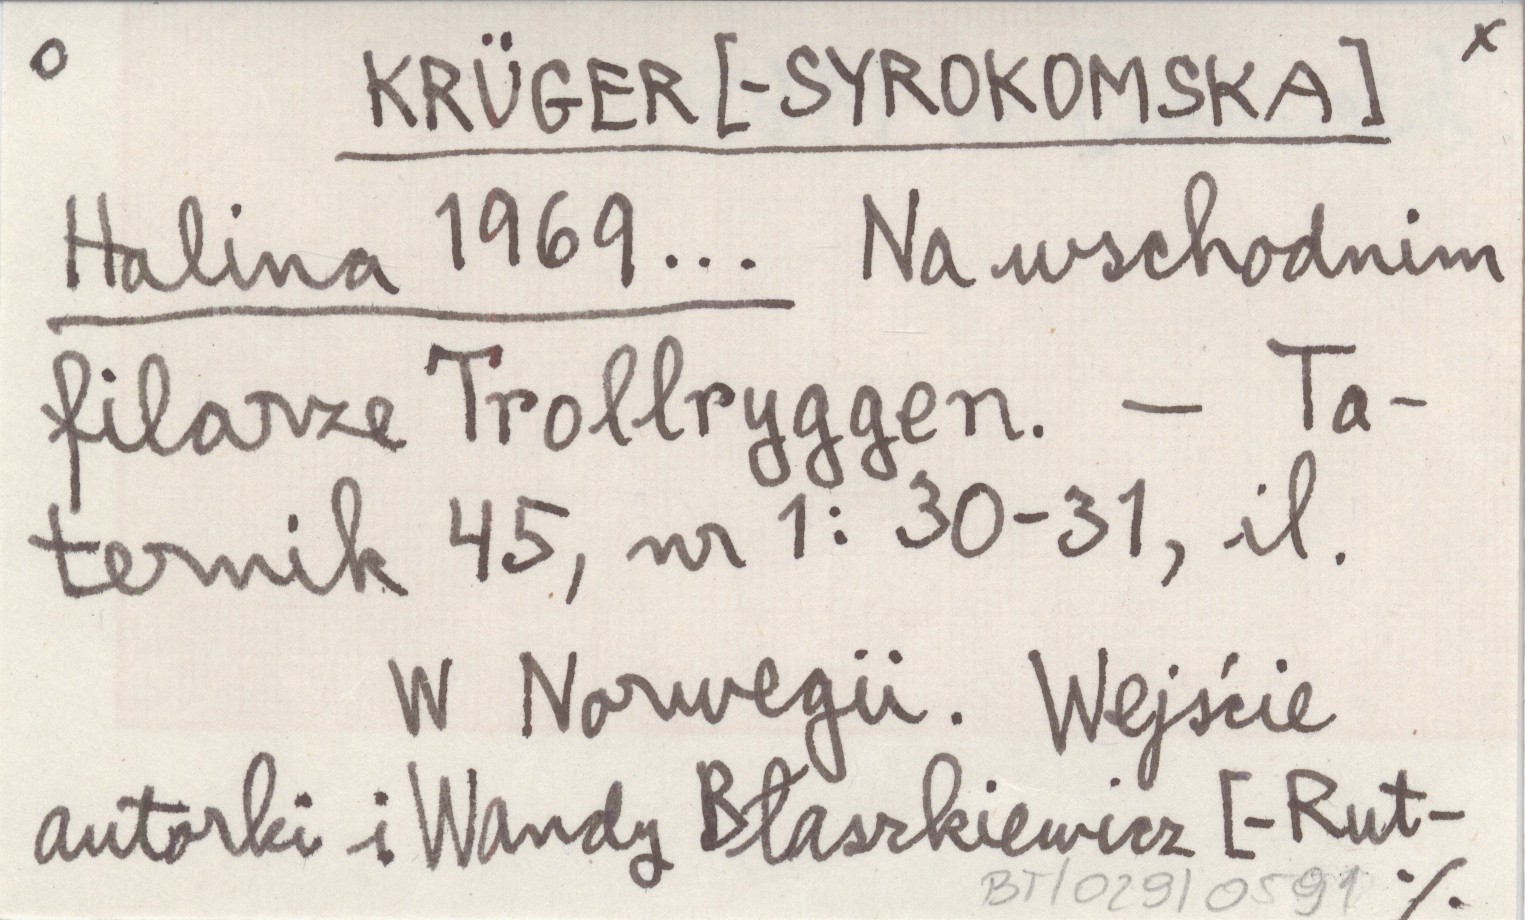 o KRÜGER [-SYROKOMSKA] x
Halina 1969... Na wschodnim
filarze Trollryggen. — Ta-
ternik 45, nr 1: 30-31, il.
W Norwegii. Wejście
autorki i Wandy Błaszkiewicz [-Rut-
BT/029/0591 ·/.